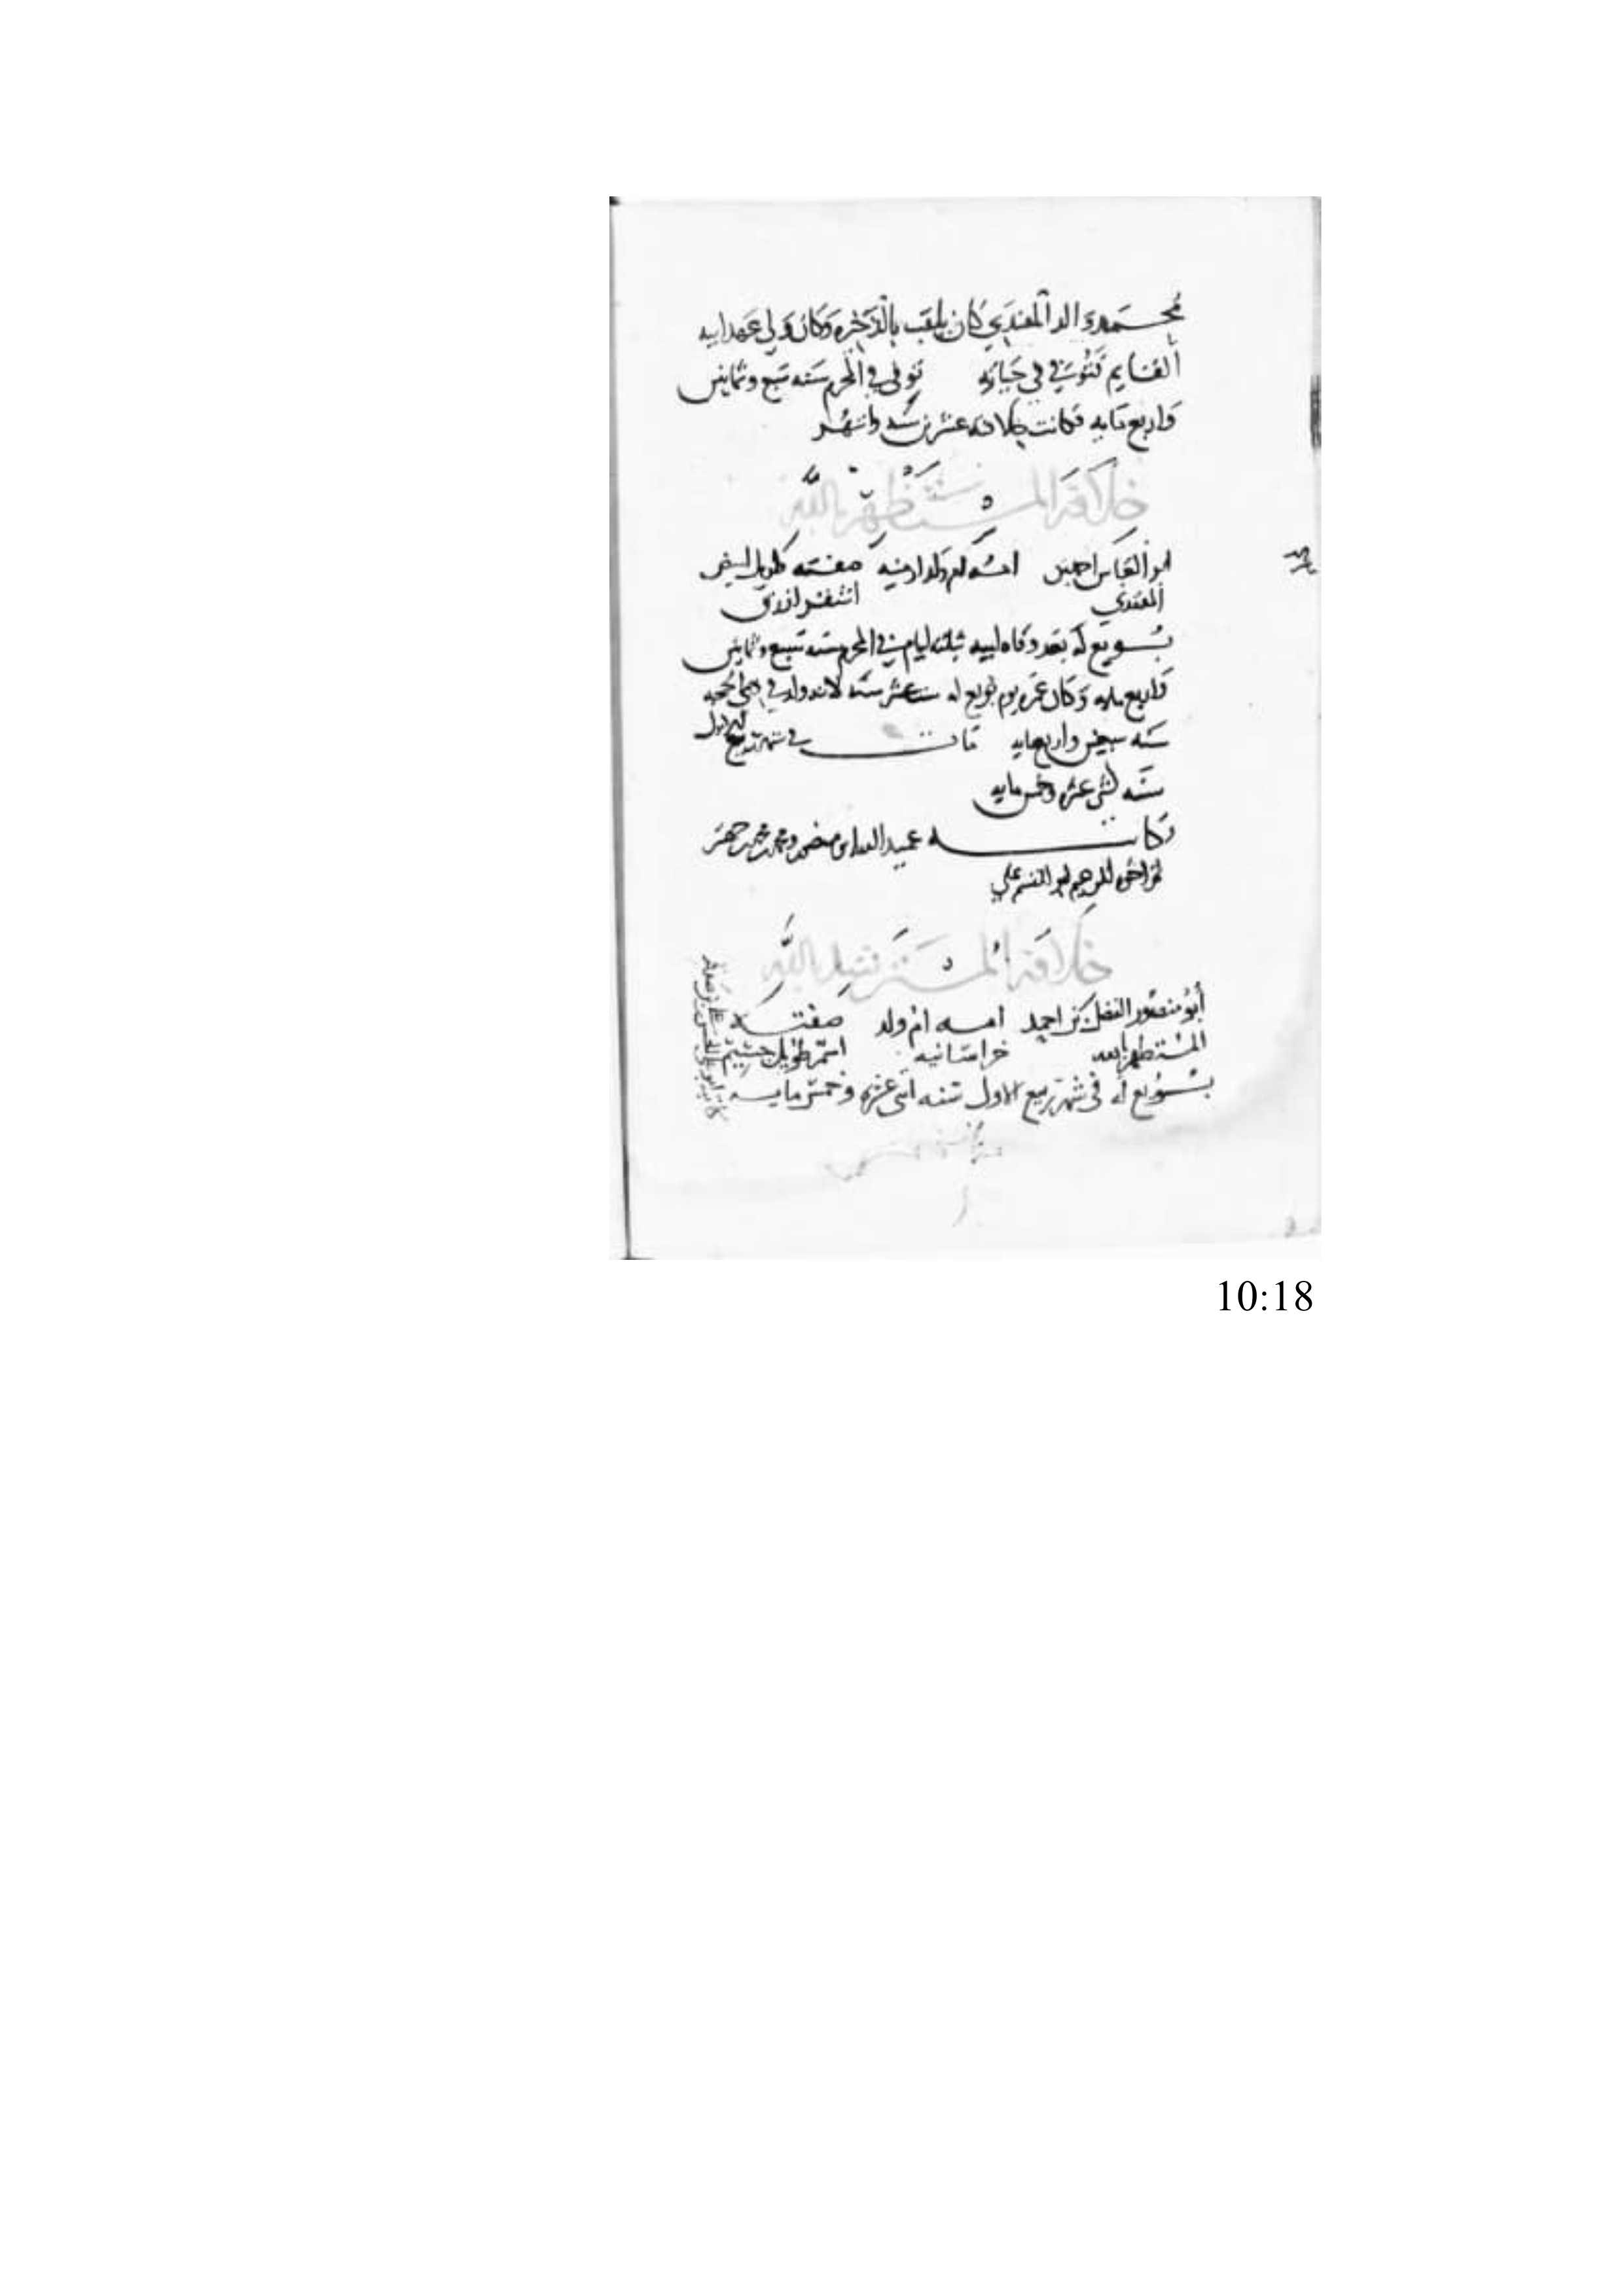 محمد والد المقتدي كان يلقب بالذخيره وكان ولي عهد ابيه
القايم فتوفي في حياته توفي في المحرم سنه سبع وثمانين
واربع مايه فكانت خلافته عشرين سنه واشهر
خلافة المستظهر بالله
ابو العباس احمد بن امه ام ولد ارمنيه صفته طويل ابيض
المقتدي اشقر ازرق
بويع له بعد وفاه ابيه بثلثه ايام في المحرم سنه سبع وثمانين
واربع مايه وكان عمره يوم بويع له ست عشر سنه لانه ولد في ذي الحجه
سنه سبعين واربعمايه مات في شهر ربيع الاول
سنه اثنى عشره وخمس مايه
وكاتبه عميد الدوله ابو منصور محمد بن محمد بن جهير
ثم اخوه الزعيم ابو القسم علي
خلافة المسترشد بالله
أبو منصور الفضل بن احمد امه ام ولد صفته
المستظهر بالله خراسانيه اسمر طويل جسيم
بويع له في شهر ربيع الاول سنه اثنى عشره وخمس مايه
كاتبه ابو علي الحسن بن علي بن صدقه
10:18